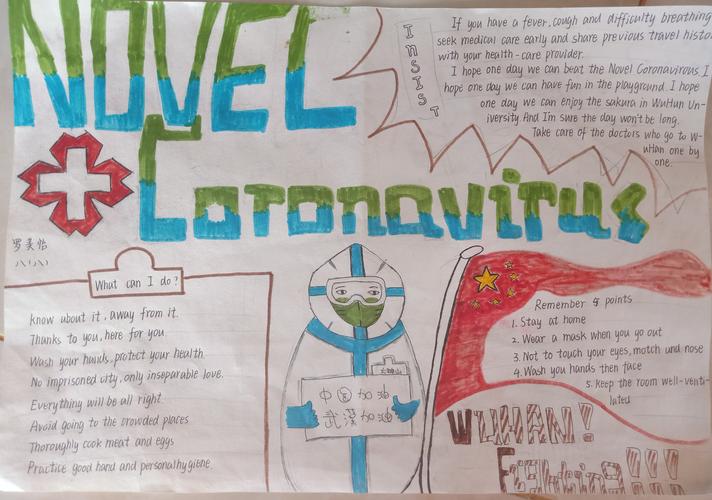 NOVEL
Coronavirus
Insist
If you have a fever, cough and difficulty breathing
seek medical care early and share previous travel histo
with your health-care provider.
I hope one day we can beat the Novel Coronavirous I
hope one day we can have fun in the playground. I hope
one day we can enjoy the sakura in WuHun Un-
iversity And I'm sure the day won't be long.
Take care of the doctors who go to W-
uHan one by
one.
What can I do?
know about it, away from it.
Thanks to you, here for you.
Wash your hands, protect your health.
No imprisoned city, only inseparable love.
Everything will be all right
Avoid going to the crowded places
Thoroughly cook meat and eggs
Practice good hand and personalhygiene.
中国加油
武漢加油
Remember 5 points
1. Stay at home
2. Wear a mask when you go out
3. Not to touch your eyes, motch und nose
4. Wash you hands then face
5. keep the room well-venti-
lated
WUHAN!
Fighting!!!